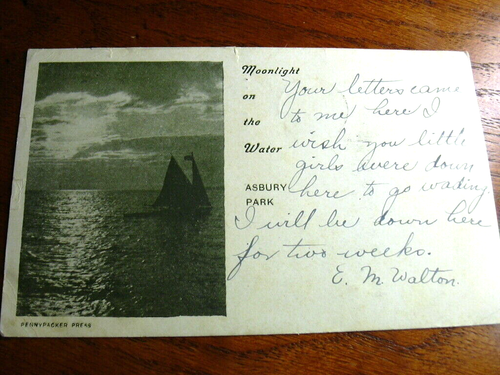 Moonlight
on
the
Water
ASBURY
PARK
Your letters came
to me here I
wish you little
girls were down
here to go wading
I will be down here
for two weeks.
E. M. Walton.
PENNYPACKER PRESS